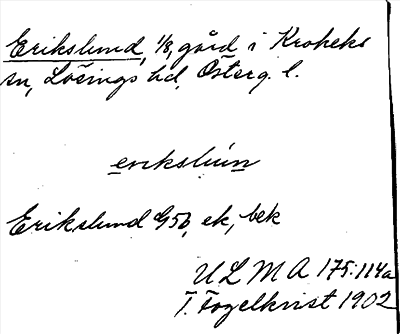 Erikslund, 1/8, gård i Krokeks
sn, Lösings hd, Österg. l.
erikslún
Erikslund G5B, ek, bek
ULMA 175:114a
T. Fogelkvist 1902